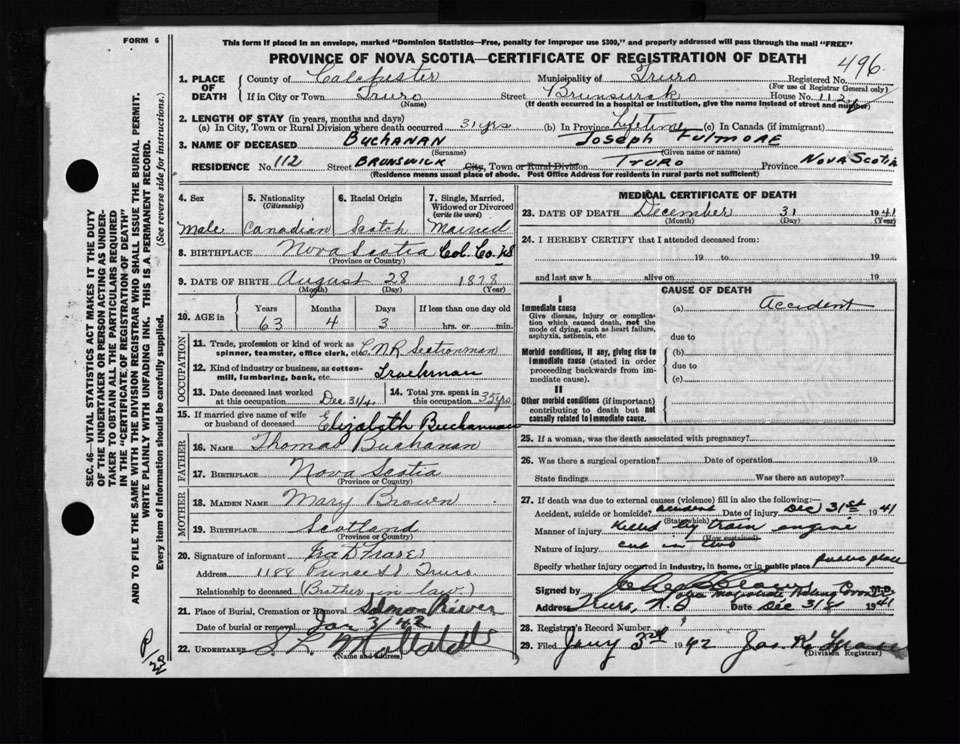 FORM 6
This form if placed in an envelope, marked "Dominion Statistics—Free, penalty for improper use $300," and properly addressed will pass through the mail "FREE"
PROVINCE OF NOVA SCOTIA—CERTIFICATE OF REGISTRATION OF DEATH
496
1. PLACE OF DEATH
County of Colchester Municipality of Truro Registered No.
(For use of Registrar General only)
If in City or Town Truro Street Brunswick House No. 112
(Name) (If death occurred in a hospital or institution, give the name instead of street and number)
2. LENGTH OF STAY (in years, months and days)
(a) In City, Town or Rural Division where death occurred 31 yrs (b) In Province Life time (c) In Canada (if immigrant)
3. NAME OF DECEASED BUCHANAN JOSEPH FULMORE
(Surname) (Given name or names)
RESIDENCE No. 112 Street BRUNSWICK City, Town or Rural Division TRURO Province NOVA SCOTIA
(Residence means usual place of abode. Post Office Address for residents in rural parts not sufficient)
4. Sex
Male
5. Nationality
(Citizenship)
Canadian
6. Racial Origin
Scotch
7. Single, Married, Widowed or Divorced
(write the word)
Married
8. BIRTHPLACE Nova Scotia Col. Co. NS
(Province or Country)
9. DATE OF BIRTH August 28 1878
(Month) (Day) (Year)
10. AGE in Years Months Days If less than one day old
63 4 3 hrs. or min.
OCCUPATION
11. Trade, profession or kind of work as
spinner, teamster, office clerk, etc. C.N.R. Sectionman
12. Kind of industry or business, as cotton-
mill, lumbering, bank, etc. Trackman
13. Date deceased last worked
at this occupation Dec 31/41
14. Total yrs. spent in
this occupation 35 yrs.
15. If married give name of wife
or husband of deceased Elizabeth Buchanan
FATHER
16. NAME Thomas Buchanan
17. BIRTHPLACE Nova Scotia
(Province or Country)
MOTHER
18. MAIDEN NAME Mary Brown
19. BIRTHPLACE Scotland
(Province or Country)
20. Signature of informant Ira D Fraser
Address 1188 Prince St Truro
Relationship to deceased (Brother in law)
21. Place of Burial, Cremation or Removal Salmon River
Date of burial or removal Jan 3/42
22. UNDERTAKER
(Name and Address)
MEDICAL CERTIFICATE OF DEATH
23. DATE OF DEATH December 31 1941
(Month) (Day) (Year)
24. I HEREBY CERTIFY that I attended deceased from:
19 to 19
and last saw h alive on 19
CAUSE OF DEATH
I
Immediate cause
Give disease, injury or compli-
cation which caused death, not the
mode of dying, such as heart failure,
asphyxia, asthenia, etc
(a) Accident
due to
Morbid conditions, if any, giving rise to
immediate cause (stated in order
proceeding backwards from im-
mediate cause).
(b)
due to
(c)
II
Other morbid conditions (if important)
contributing to death but not
causally related to immediate cause.
25. If a woman, was the death associated with pregnancy?
26. Was there a surgical operation? Date of operation 19
State findings Was there an autopsy?
27. If death was due to external causes (violence) fill in also the following:—
Accident, suicide or homicide? accident Date of injury Dec 31st 1941
(State which)
Manner of injury Killed by train engine
(How sustained)
Nature of injury cut in two
Specify whether injury occurred in industry, in home, or in public place public place
Signed by
Address Truro, N.S Date Dec 31 1941
28. Registrar's Record Number
29. Filed Jany 3rd 1942
(Division Registrar)
SEC. 46—VITAL STATISTICS ACT MAKES IT THE DUTY
OF THE UNDERTAKER OR PERSON ACTING AS UNDER-
TAKER TO OBTAIN ALL THE PARTICULARS REQUIRED
IN THE "CERTIFICATE OF REGISTRATION OF DEATH"
AND TO FILE THE SAME WITH THE DIVISION REGISTRAR WHO SHALL ISSUE THE BURIAL PERMIT.
WRITE PLAINLY WITH UNFADING INK. THIS IS A PERMANENT RECORD.
Every item of Information should be carefully supplied. (See reverse side for instructions.)